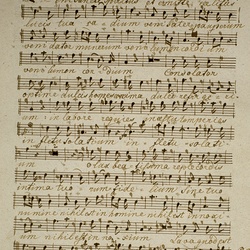 lucis tuae radium veni pater pauperum
veni dator munerum veni lumen cordium
veni lumen cordium Consolator
optime dulcis hospes animae dulce refrige
um in labore requies in aestu temperies
in fletu solatium in fletu sola ti
um O lux beatissima reple cordis
intima tuo rum fide lium Sine tuo
numine nihil est in homine nihil est innoxi
um nihil est innoxium Lava quod est